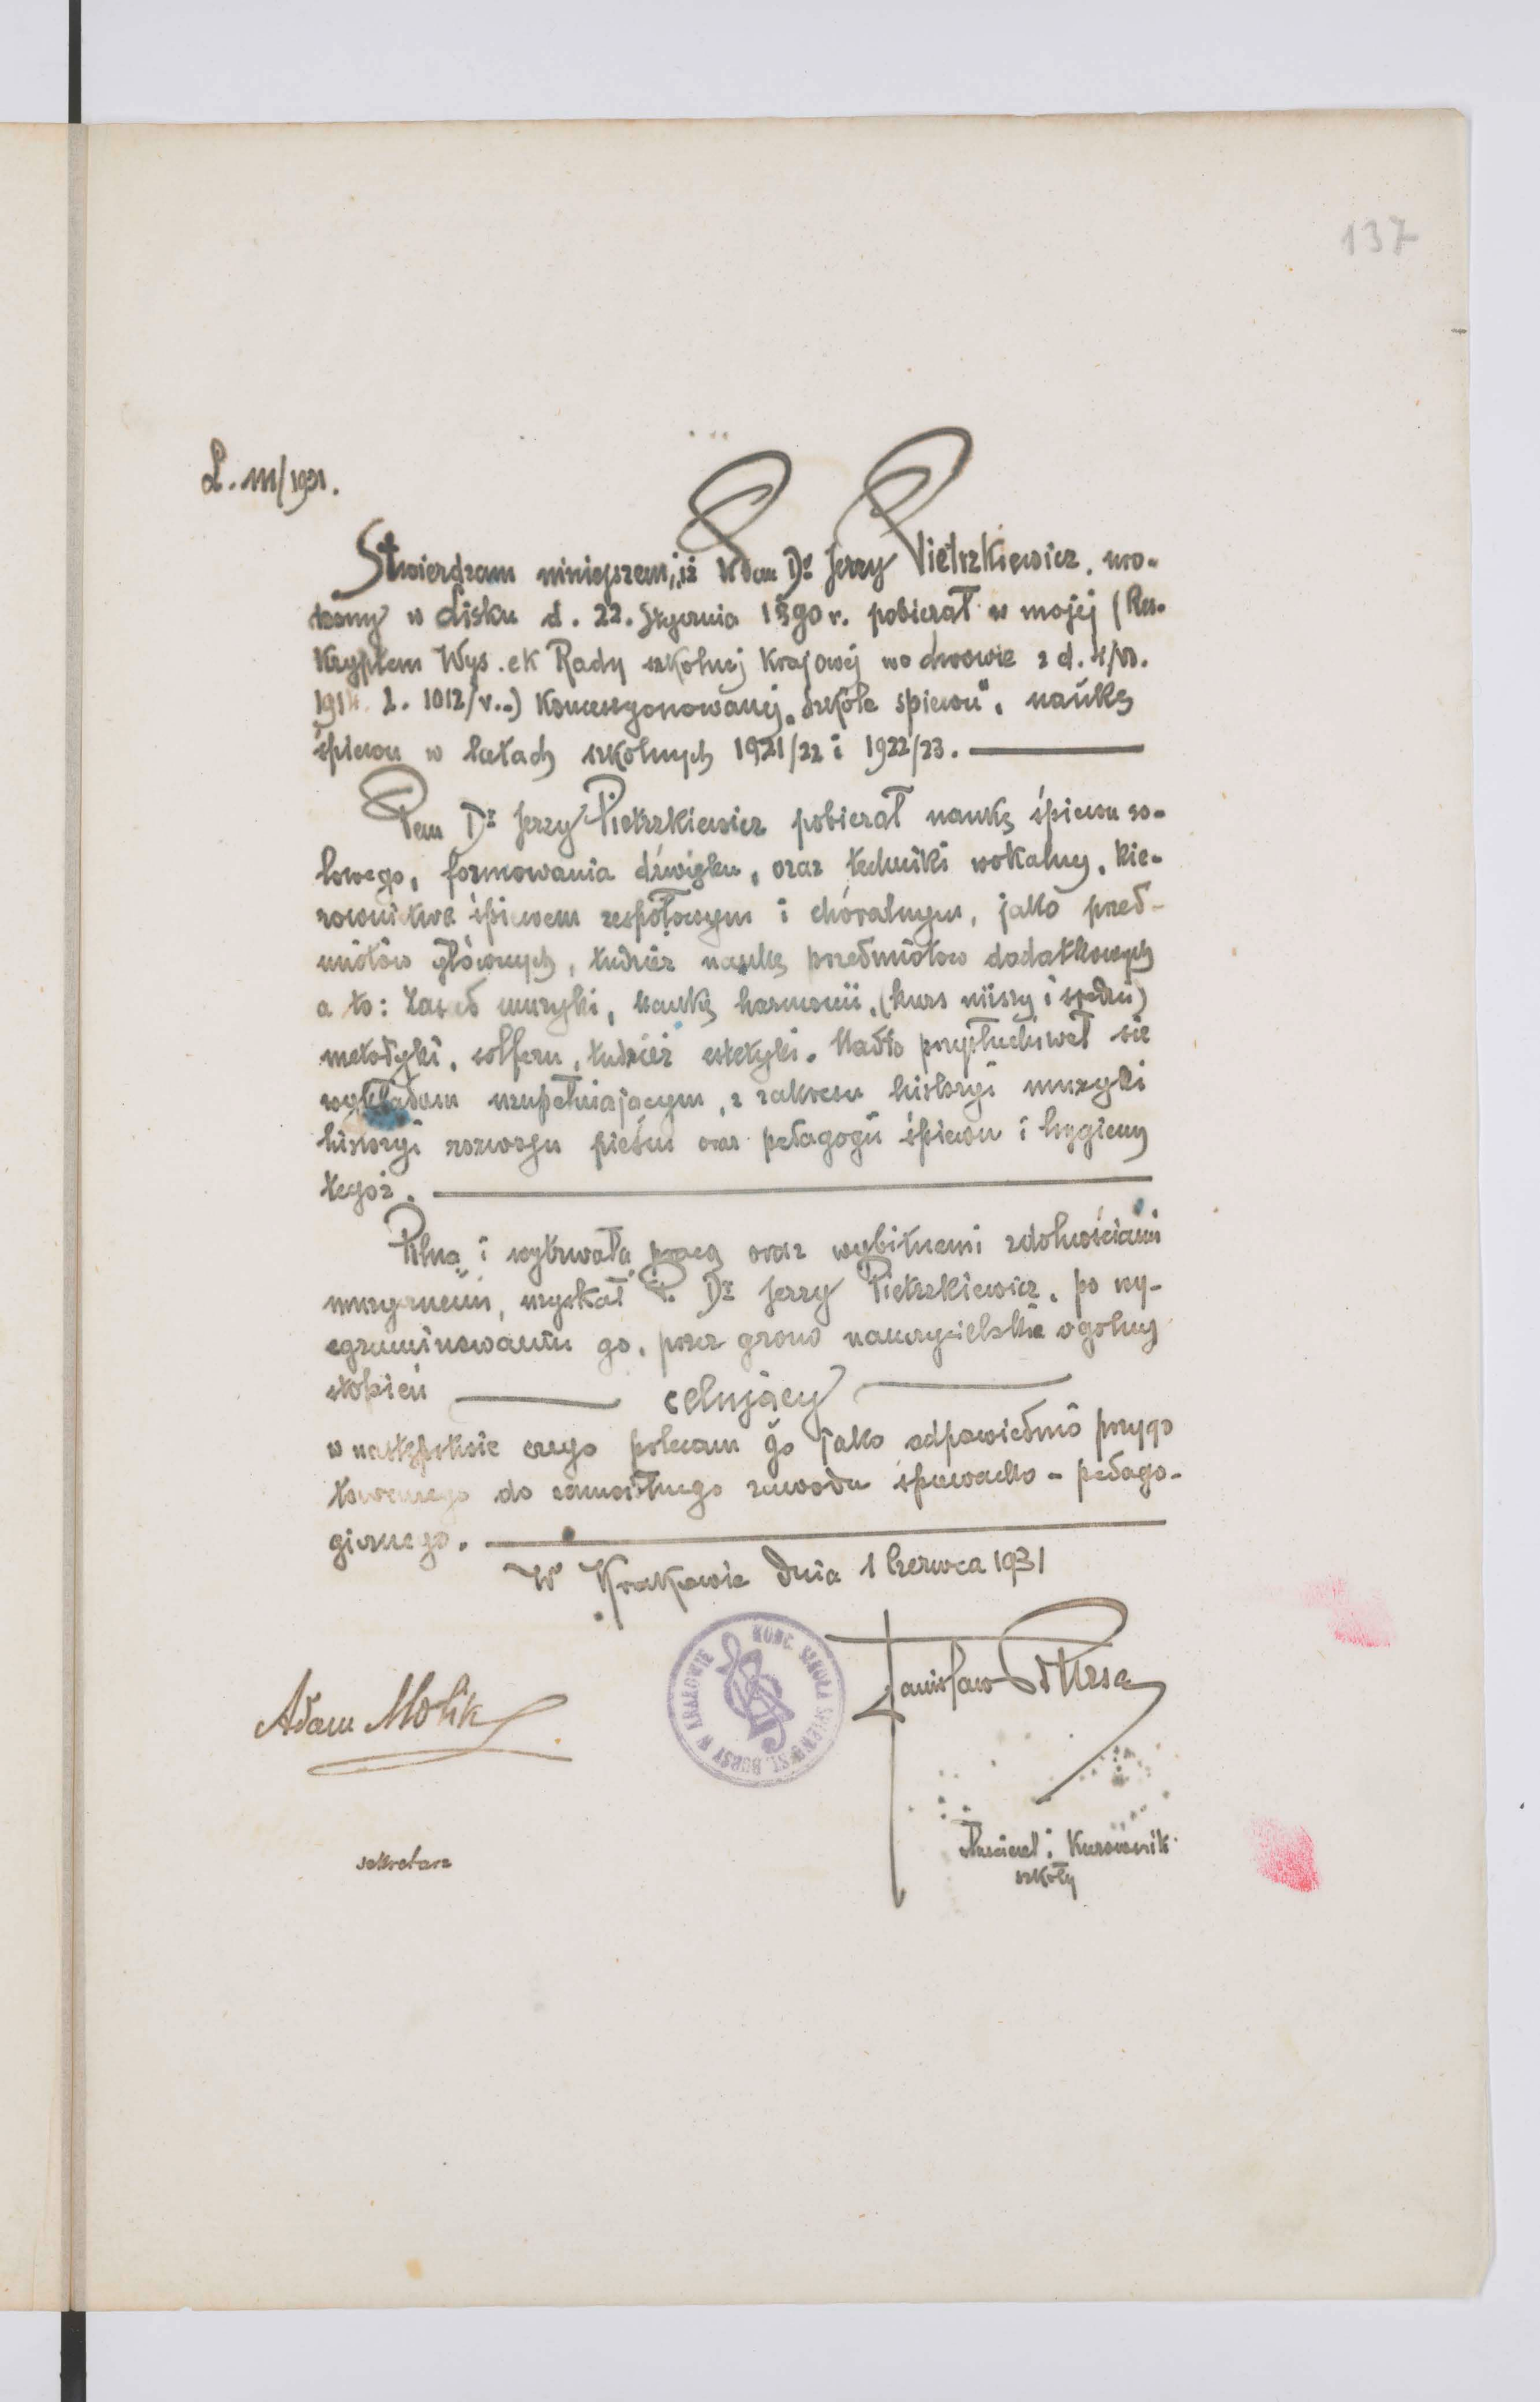 137
L. III/1931.
Stwierdzam niniejszem, iż Pan Dr Jerzy Pietrzkiewicz, uro-
dzony w Lisku d. 22. Stycznia 1890 r. pobierał w mojej (Res-
kryptem Wys. ck Rady szkolnej Krajowej we Lwowie z d.
1914. L. 1012/V..) Koncesyonowanej „Szkole śpiewu", naukę
śpiewu w latach szkolnych 1921/22 i 1922/23.
Pan Dr Jerzy Pietrzkiewicz pobierał naukę śpiewu so-
lowego, formowania dźwięku, oraz techniki wokalnej, kie-
rownictwa śpiewem zespołowym i chóralnym, jako przed-
miotów głównych, tudzież naukę przedmiotów dodatkowych
a to: Zasad muzyki, Naukę harmonii, (kurs niższy i średni)
metodyki, solfezu, tudzież estetyki. Nadto przysłuchiwał sie
wykładom uzupełniającym, z zakresu historyi muzyki
historyi rozwoju pieśni oraz pedagogii śpiewu i hygieny
tegoż.
Pilną i wytrwałą pracą oraz wybitnemi zdolnościami
muzycznemi, uzyskał P. Dr Jerzy Pietrzkiewicz, po wy-
egzaminowaniu go, przez grono nauczycielskie ogólny
stopień celujący
w następstwie czego polecam go jako odpowiednio przygo
towanego do samoistnego zawodu śpiewacko - pedago-
gicznego.
W Krakowie dnia 1 Czerwca 1931
KONC. SZKOŁA ŚPIEWU ST. BURSY W KRAKOWIE
Adam Molik
Stanisław Bursa
sekretarz
właściciel i Kierownik
szkoły